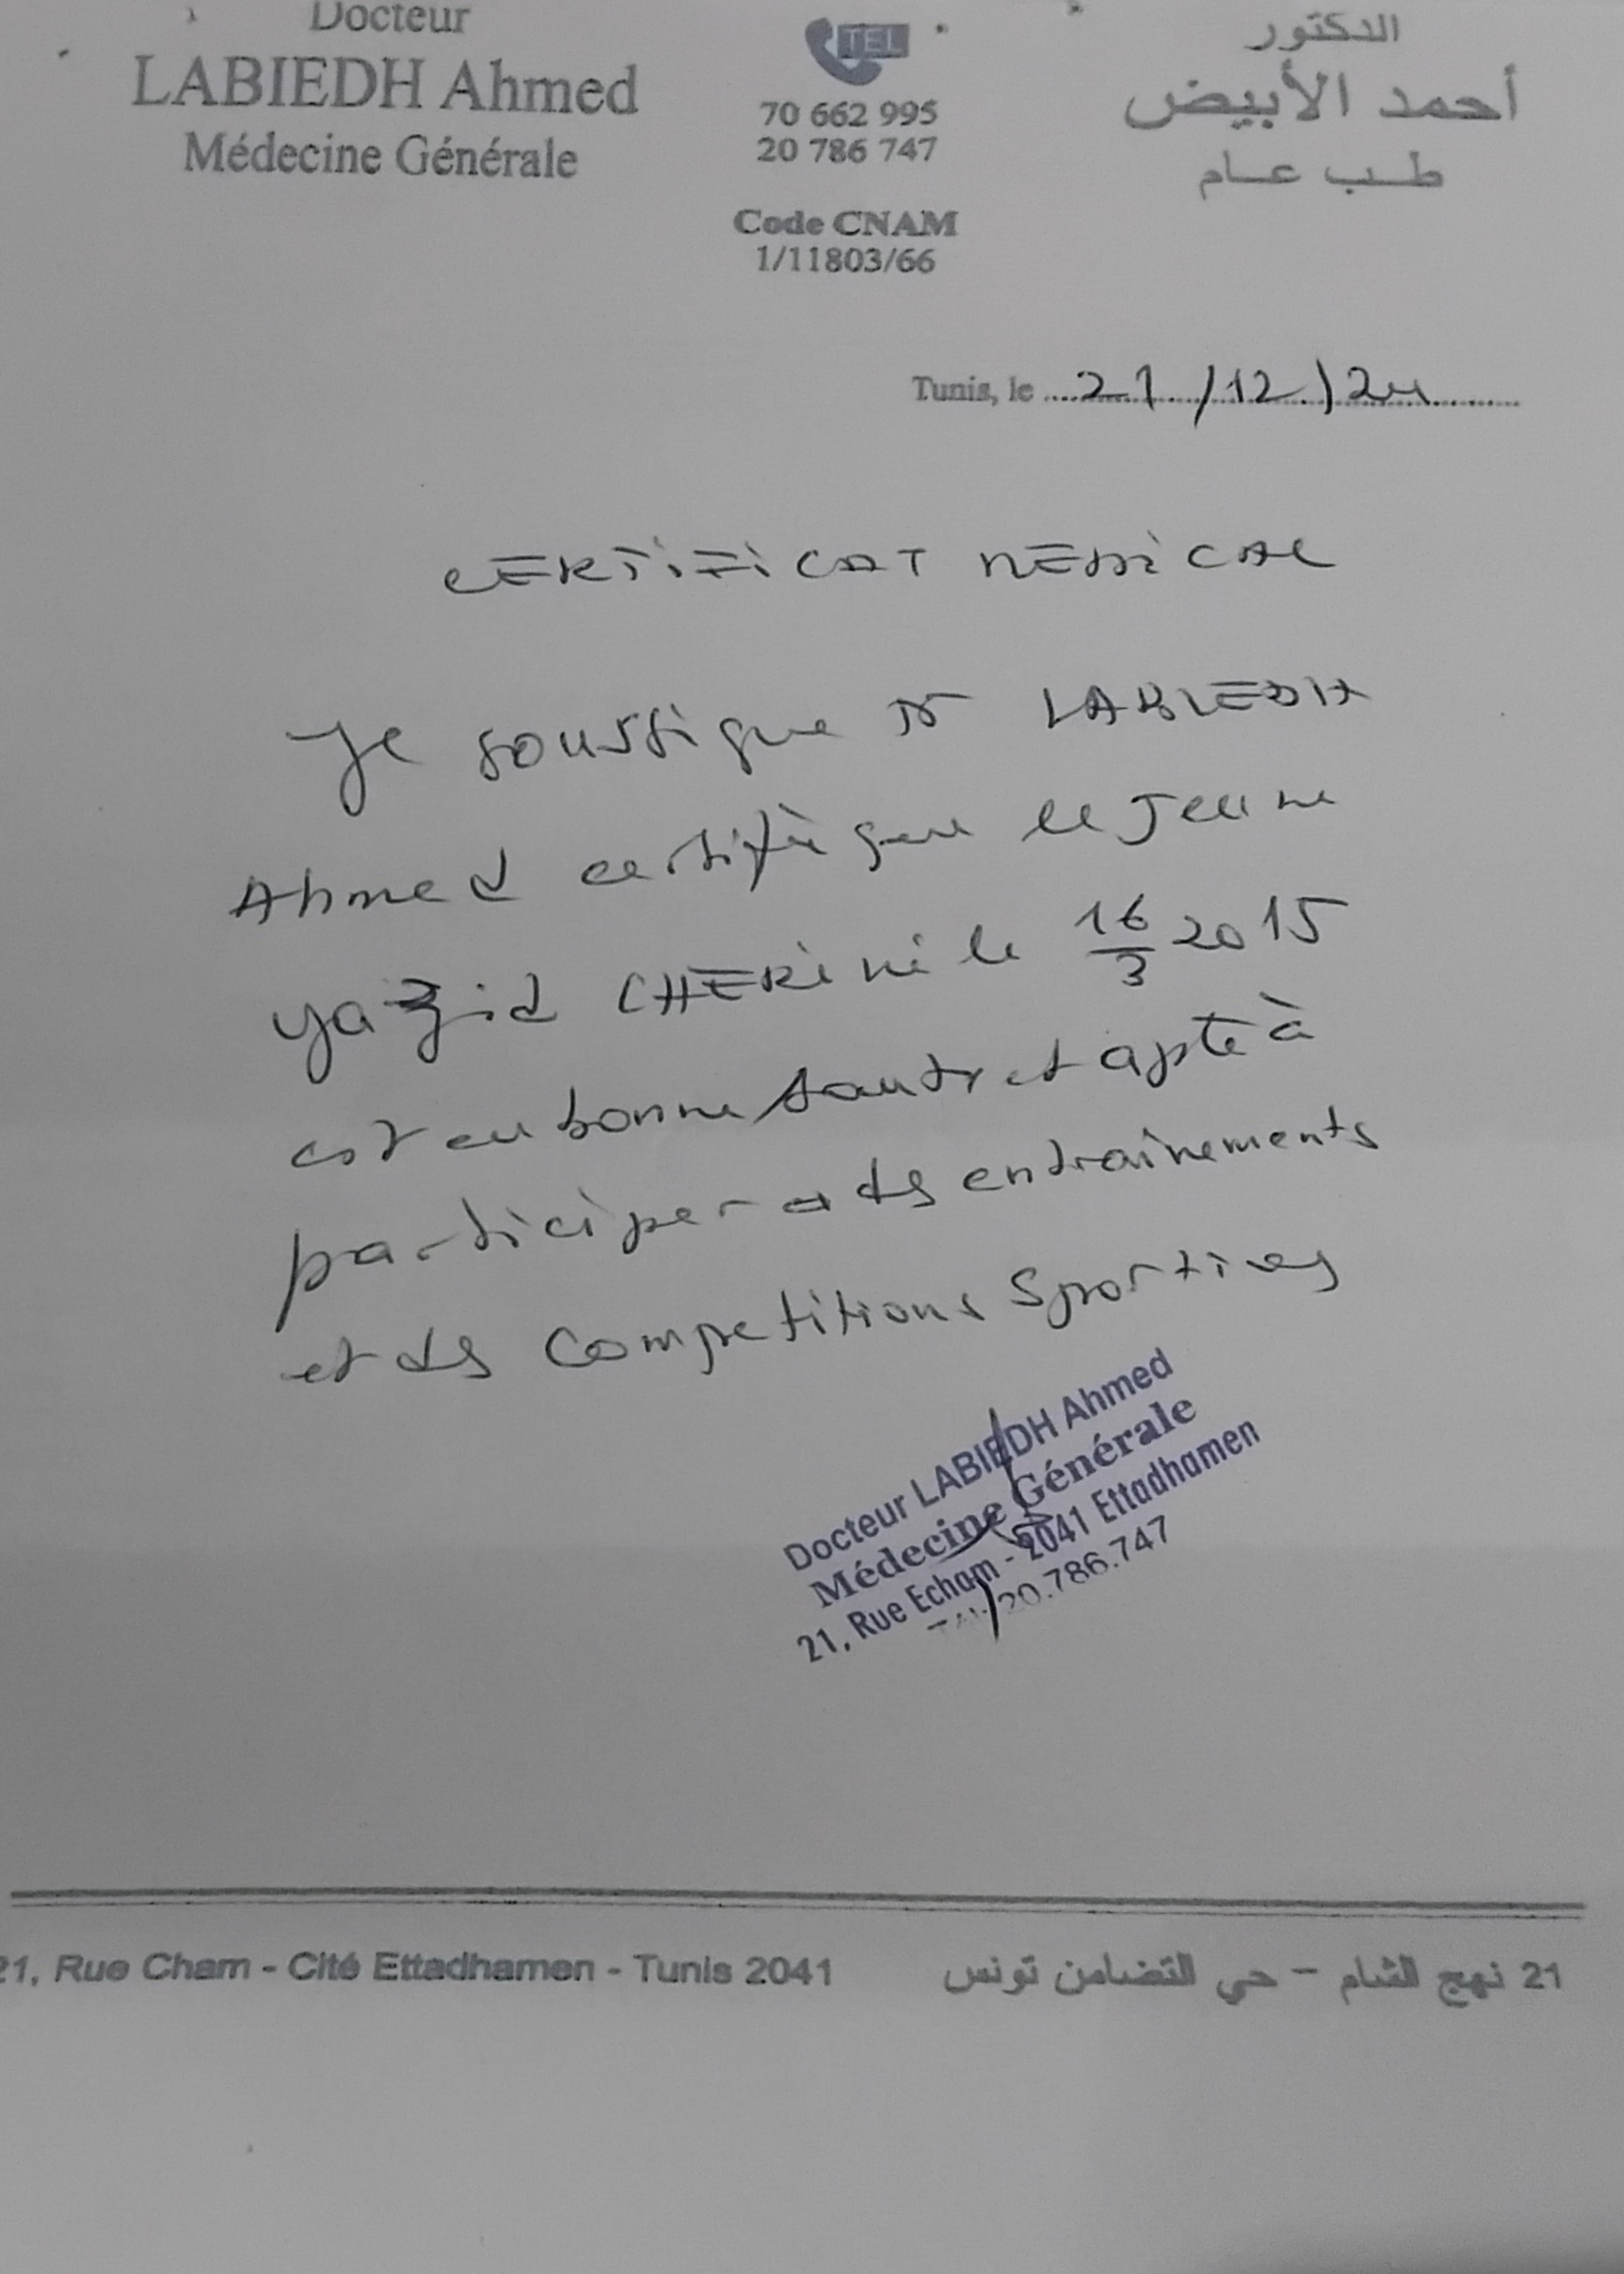 Docteur
LABIEDH Ahmed
Médecine Générale
TEL
70 662 995
20 786 747
Code CNAM
1/11803/66
الدكتور
أحمد الأبيض
طب عام
Tunis, le 21/12/24
CERTIFICAT MEDICAL
Je soussigne Dr LABIEDH
Ahmed certifie que le jeune
Yazid CHERi né le 16/3 2015
est en bonne santé et apte à
participer a des entrainements
et des Competitions Sportives
Docteur LABIEDH Ahmed
Médecine Générale
21, Rue Echam - 2041 Ettadhamen
Tél: 20.786.747
21, Rue Cham - Cité Ettadhamen - Tunis 2041
21 نهج الشام – حي التضامن تونس